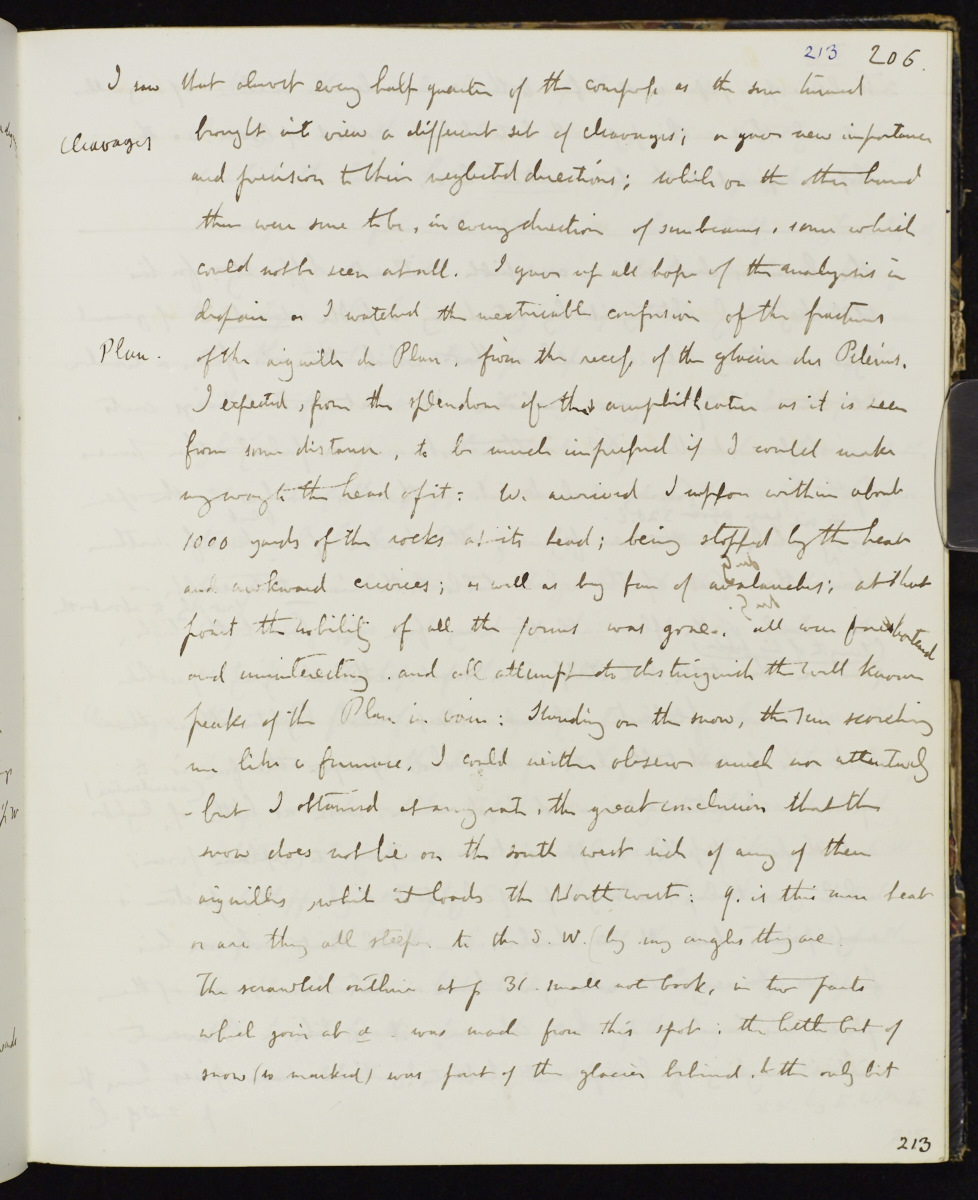 213 206.
I saw that almost every half quarter of the compass as the sun turned
Cleavages
brought into view a different set of cleavages; or gave new importance
and precision to their neglected directions; while on the other hand
there were sure to be, in every direction of sunbeams, some which
could not be seen at all. I gave up all hope of the analysis in
despair as I watched the inextricable confusion of the fractures
Plan.
of the aiguille du Plan, from the recess of the glacier des Pelerins.
I expected, from the splendour of this amphitheatre as it is seen
from some distance, to be much impressed if I could make
my way to the head of it: We arrived I suppose within about
1000 yards of the rocks at its head; being stopped by the heat
and awkward crevices; as well as by fear of avalanches; at that
point the nobility of all the forms was gone. all were foreshortened
and uninteresting. and all attempt to distinguish the well known
peaks of the Plan in vain: Standing on the snow, the sun scorching
me like a furnace, I could neither observe much nor attentively
- but I obtained at any rate, the great conclusion that the
snow does not lie on the south west side of any of these
aiguilles, while it loads the North west: q. is this mere heat
or are they all steeper to the S. W. (by my angles they are.
The scrawled outline at p 31. small note book, in two parts
which join at a. was made from this spot: the little bit of
snow (so marked) was part of the glacier behind, &amp; the only bit
213